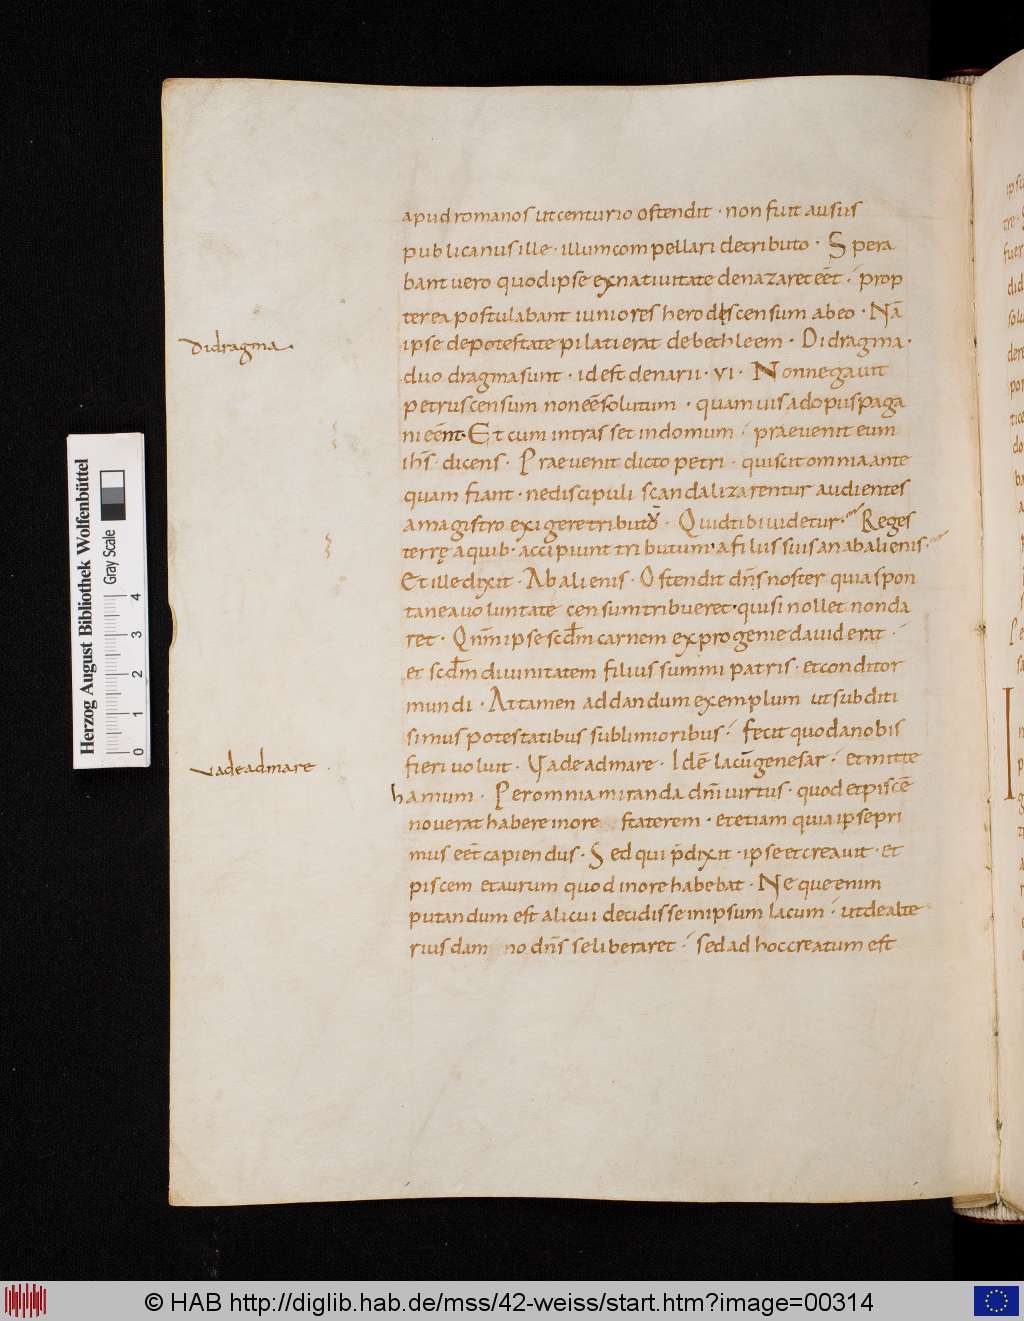 apud romanos ut centurio ostendit · non fuit ausus
publicanus ille · illum compellari de tributo · Spera
bant uero quod ipse ex natiuitate de nazaret eēt · prop
terea postulabant iuniores herodis censum ab eo · Nā
Didragma.
ipse de potestate pilati erat de bethleem · Didragma ·
duo dragma sunt · id est denarii · vi · Non negauit
petrus censum non eē solutum · quamuis ad opus paga
ni eēnt · Et cum intrasset in domum · praeuenit eum
ihs̄ · dicens · Praeuenit dicto petri · qui scit omnia ante
quam fiant · ne discipuli scandalizarentur audientes
a magistro exigere tributū · Quid tibi uidetur · Reges
terrę a quib · accipiunt tributum · a filiis suis an ab alienis ·
Et ille dixit · Ab alienis · Ostendit dn̄s noster quia spon
tanea uoluntate censum tribueret · qui si nollet non da
ret · Qn̄m ipse scd̄m carnem ex progenie dauid erat ·
et scd̄m diuinitatem filius summi patris · et conditor
mundi · Attamen ad dandum exemplum ut subditi
simus potestatibus sublimioribus · fecit quod a nobis
Vade ad mare
fieri uoluit · Vade ad mare · Id ē lacum genesar · et mitte
hamum · Per omnia miranda dn̄i uirtus · quod et piscē
nouerat habere in ore staterem · et etiam quia ipse pri
mus eēt capiendus · Sed qui p̄dixit · ipse et creauit · et
piscem et aurum quod in ore habebat · Neque enim
putandum est alicui decidisse in ipsum lacum · ut de alte
rius dam no dn̄s se liberaret · sed ad hoc creatum est
Herzog August Bibliothek Wolfenbüttel
Gray Scale
0 1 2 3 4
© HAB http://diglib.hab.de/mss/42-weiss/start.htm?image=00314